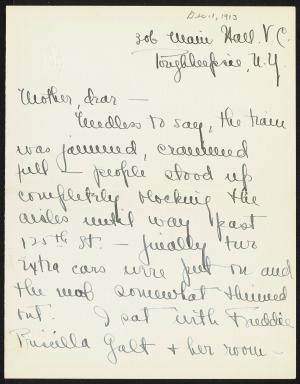 Dec 1, 1913
306 Main Hall. V C.
Poughkeepsie, N.Y.
Mother, dear —
Needless to say, the train
was jammed, crammed
full — people stood up
completely blocking the
aisles until way past
125th St. — finally two
extra cars were put on and
the mob somewhat thinned
out. I sat with Freddie
Priscilla Galt + her room-